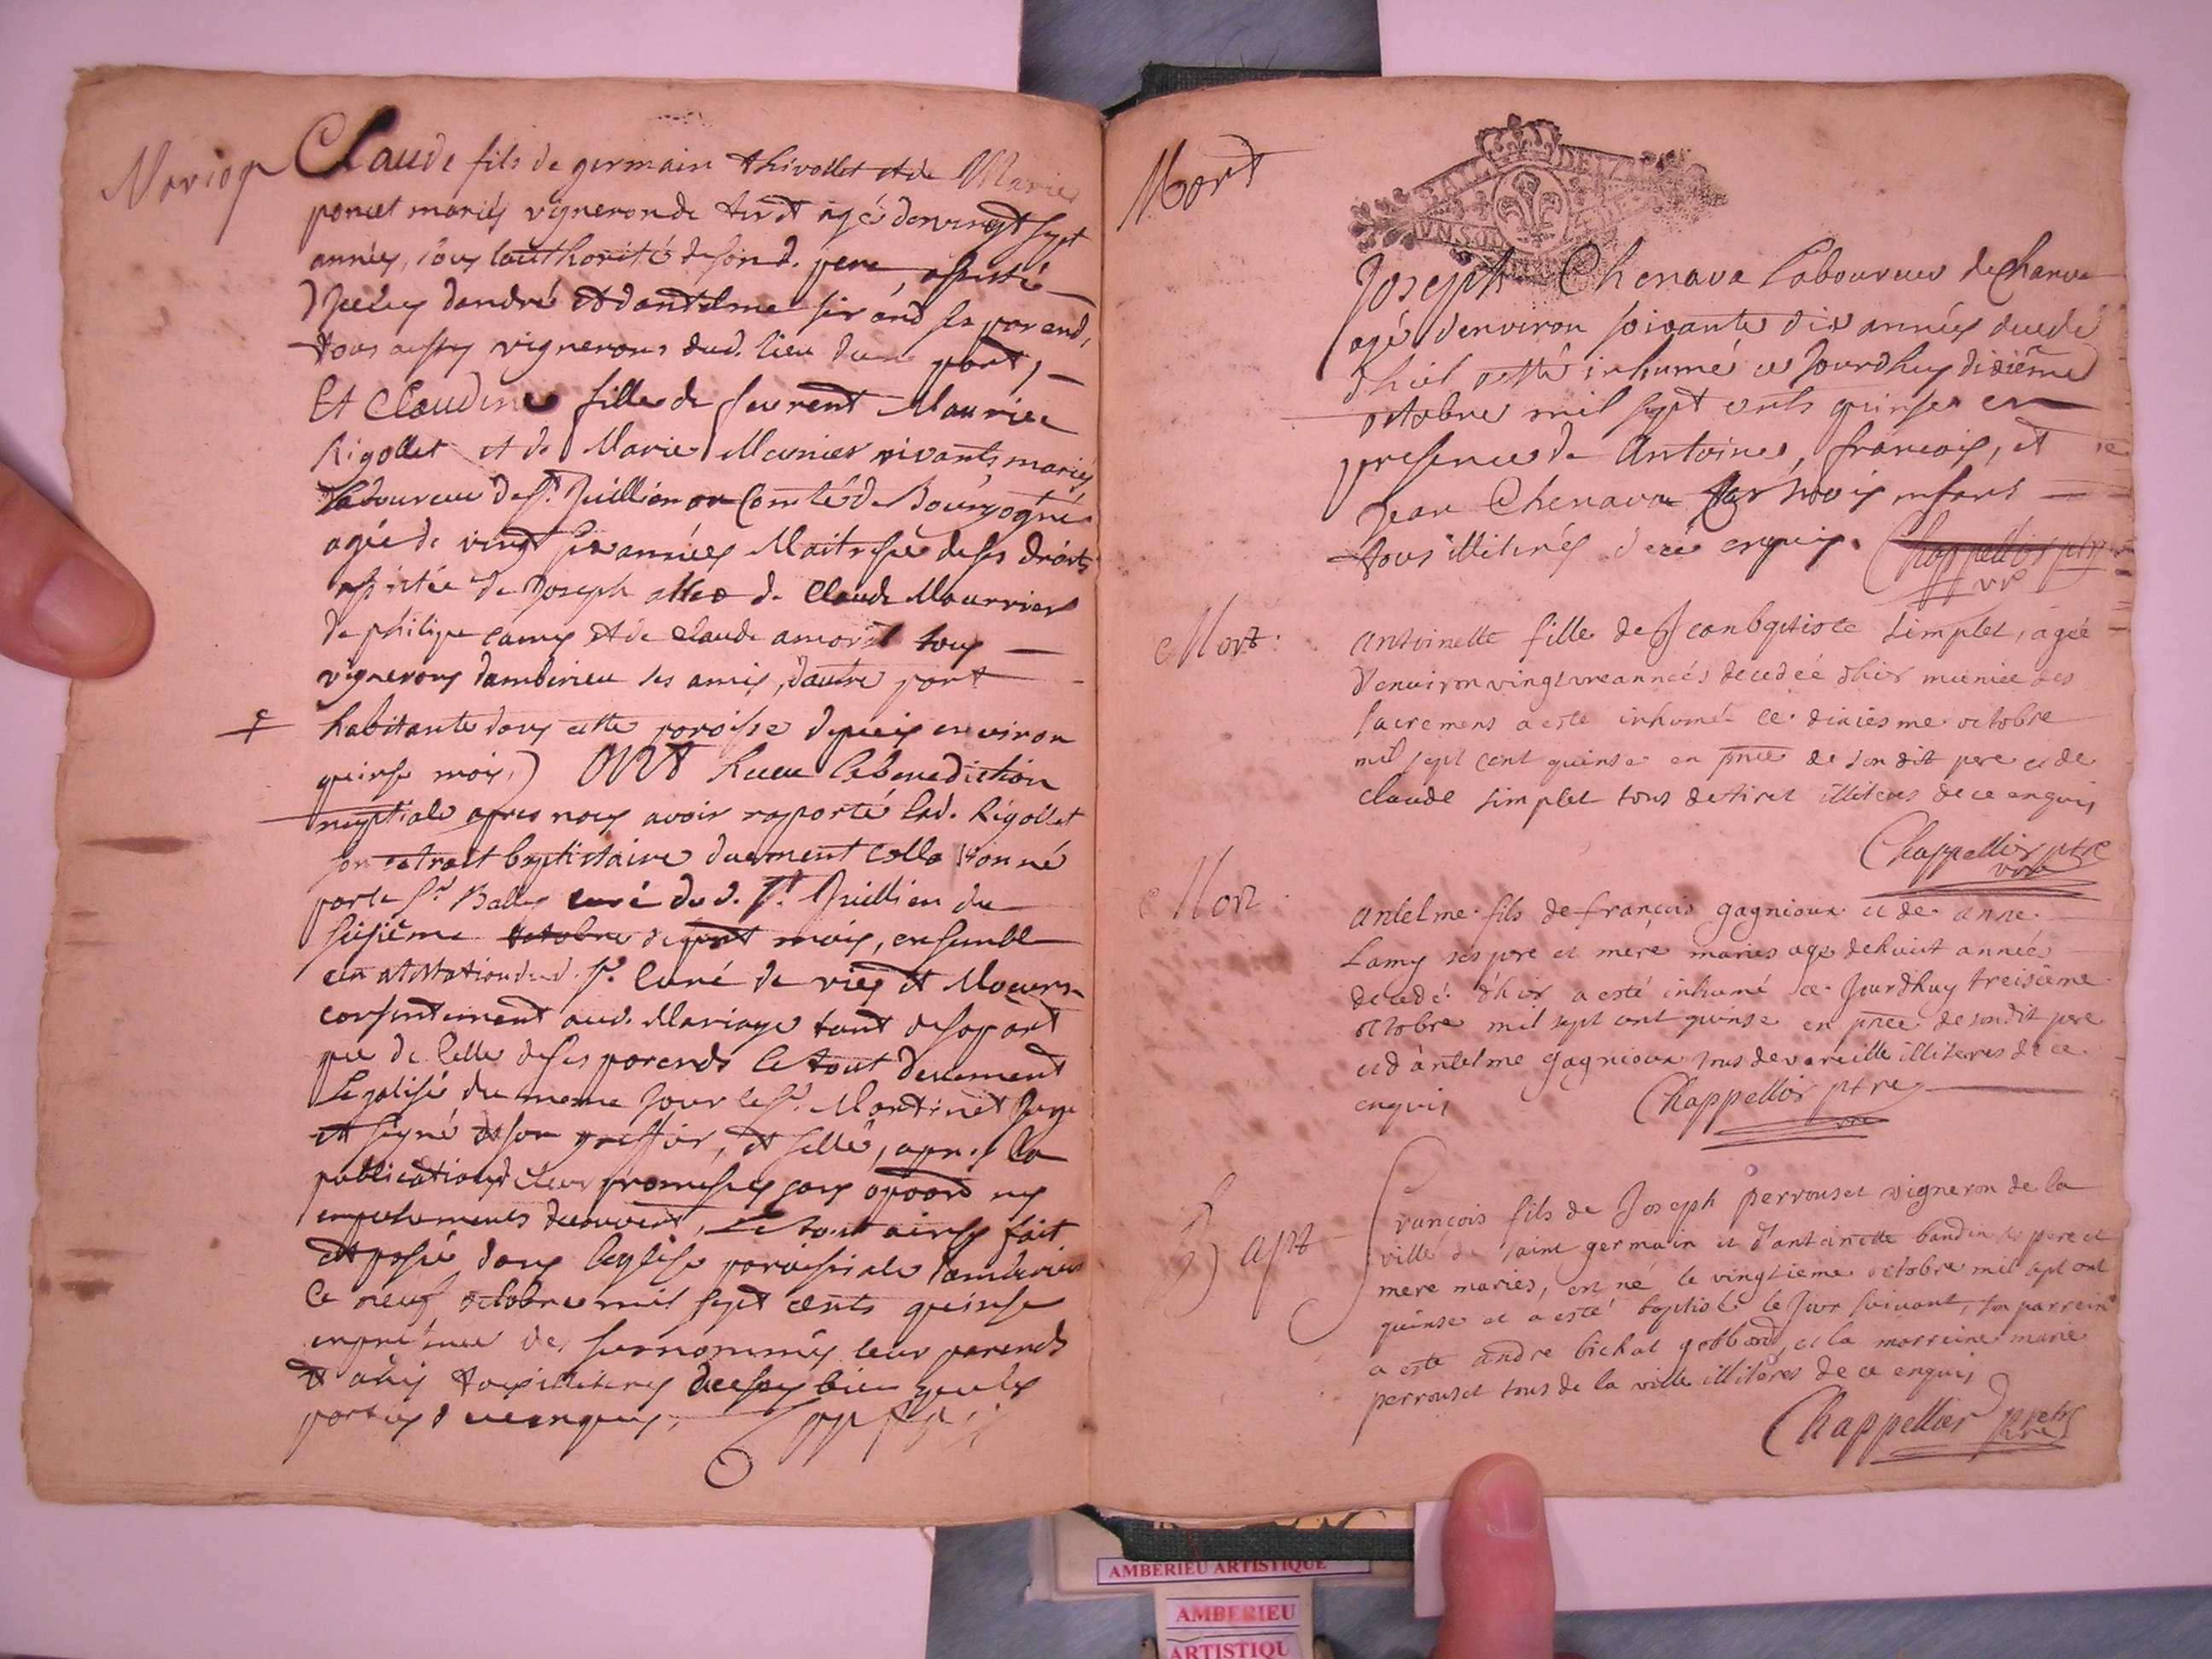 Mariage
Claude fils de germain thivollet et de Marie
poncet mariés vigneron de tiret agé denvingt sept
années, sous lauthorité de son d. pere, assisté
d'andré et dantelme sirand ses parend,
tous aussy vignerons dud. lieu dune part,
Et Claudine fille de feu rent Maurice
Rigollet et de Marie Meunier vivants mariés
laboureur de St. Juillien au Comté de Bourgogne
agée de vingt six années Maitresse de ses droits
assistée de Joseph de Claude Mourrier
de philipe Lamy et de claude amorel tous
vignerons dambérieu ses amis, dautre part
habitante dans cette paroisse depuis environ
quinse mois,) ONT Receu la benediction
nuptiale apres nous avoir raporté lad. Rigollet
son extrait baptistaire duement collationné
par le Sr. Bally curé dud. St. Juillien du
seisième octobre mois, ensemble
un atestation dud. Sr. Curé de vies et Moeurs
consentement aud. Mariage tant de sa part
que de celle de ses parends le tout deuement
Legalisé du meme Jour le Sr. Martinet Juge
et signé de son greffier, et sellé, apres la
publication de leurs promesses sans opposition ny
empechements decouvert, le tout ainsy fait
et passé dans leglise paroissiale dambérieu
le neuf octobre mil sept cents quinse
en presence des surnommés leur parends
et amis tous illiterés bien que les
parties de ce enquis,
Mort
Joseph Chenava laboureur de Chanva
agé denviron soixante dix années decede
d'hier a esté inhumé ce Jourdhuy dixième
octobre mil sept cents quinse en
presence de Antoine, francois, et
Jean Chenava ses trois enfans
tous illiterés de ce enquis. Chappellier ptre
vre
Mort
antoinette fille de Jeanbaptiste Simplet, agée
d'environ vingt une années decedeé dhier munie des
sacremens a esté inhumée ce dixiesme octobre
mil sept cent quinse en pnce de son dit pere et de
claude simplet tous de tiret illiteres de ce enquis
Chappellier ptre
vre
Mort
antelme fils de françois gagnioux et de anne
Lamy ses pere et mere mariés agé dehuict années
decedé d'hier a esté inhumé ce Jourdhuy treisième
octobre mil sept cent quinse en pnce de sondit pere
et d'antelme gagnioux tous de vareille illiteres de ce
enquis Chappellier ptre
vre
Bapt
François fils de Joseph perrouset vigneron de la
ville de saint germain et d'antoinette baudin ses pere et
mere mariés, est né le vingtieme octobre mil sept cent
quinse et a esté baptisé le Jour suivant, son parrein
a esté andre bichat gobband, et la marreine marie
perrouset tous de la ville illiteres de ce enquis
Chappellier ptre
vre
AMBERIEU ARTISTIQUE
AMBERIEU
ARTISTIQU